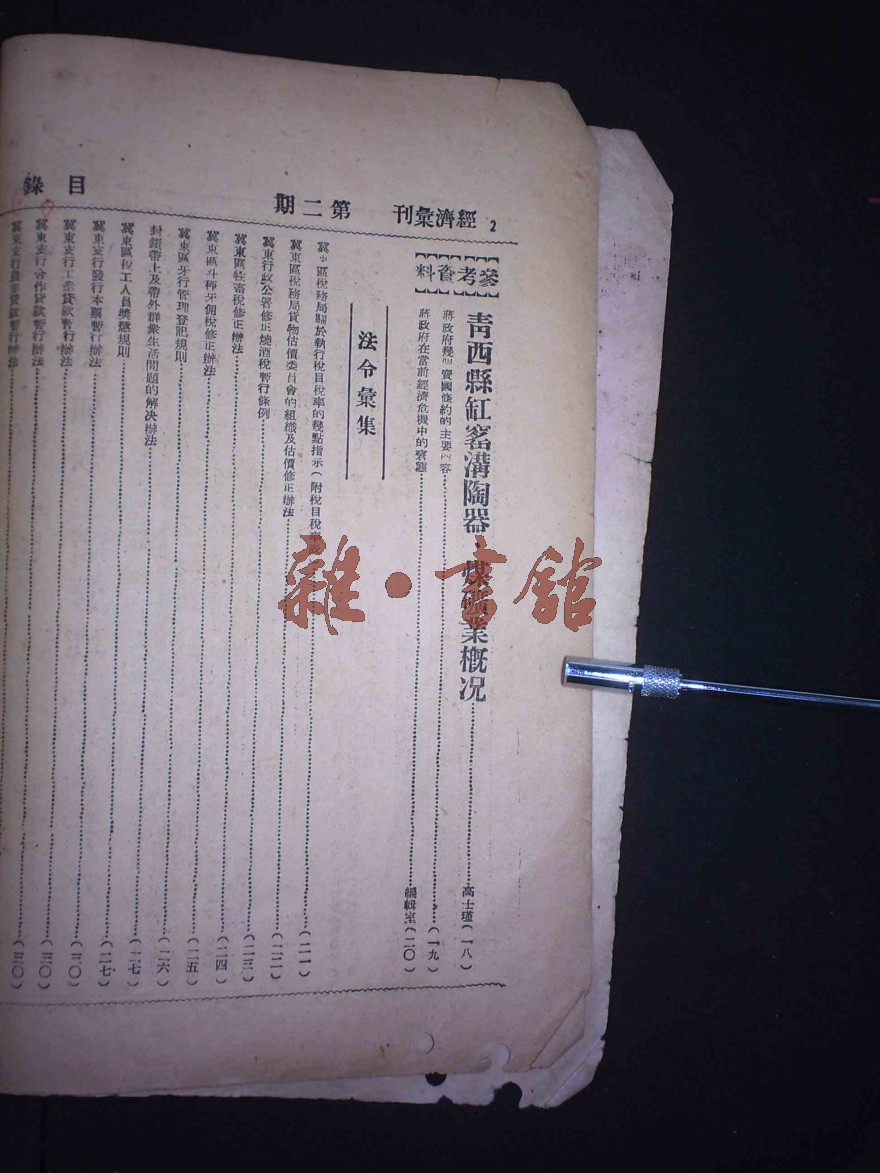 2 經濟彙刊 第二期 目錄
【參考資料】
靑西縣缸窰溝陶器、煤礦業概况……高士瑾(一八)
蔣政府幾 賣國條約的主要 容……(一九)
蔣政府在當前經濟危機中的窘態……編輯室(二〇)
法令彙集
冀 區稅務局關於執行稅目稅率的幾點指示(附稅目稅率表)……(二一)
冀東區稅務局貨物估價委員會的組織及估價修正辦法……(二二)
冀東行政公署修正燒酒稅暫行條例……(二三)
冀東區牲畜稅修正辦法……(二四)
冀東區斗秤牙佣稅修正辦法……(二五)
冀東區牙行管理登記規則……(二六)
封鎖帶上及帶外群衆生活問題的解决辦法……(二七)
冀東區稅工人員獎懲規則……(二七)
冀東支行發行本票暫行辦法……(三〇)
冀東支行工業貸款暫行辦法……(三〇)
冀東支行合作貸款暫行辦法……(三〇)
冀東支行農業貸款暫行辦法
雜·書館